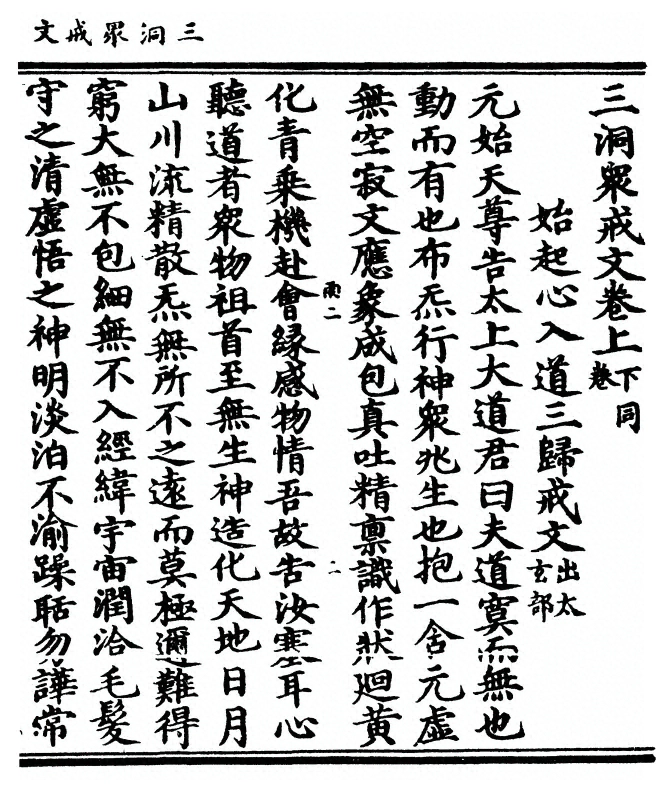 三洞眾戒文
三洞眾戒文卷上下同卷
始起心入道三歸戒文出太玄部
元始天尊告太上大道君曰夫道寞而無也
動而有也布炁行神眾兆生也抱一含元虛
無空寂文應象成包真吐精稟識作狀迴黃
雨二
二
化青乘機赴會緣感物情吾故告汝塞耳心
聽道者眾物祖首至無生神造化天地日月
山川流精散炁無所不之遠而莫極邇難得
窮大無不包細無不入經緯宇宙潤洽毛髮
守之清虛悟之神明淡泊不渝躁聒勿譁常